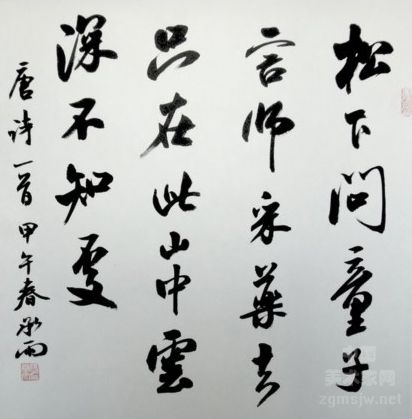 松下问童子
言师采药去
只在此山中雲
深不知處
唐诗一首 甲午春 承雨
中国
美术家网
zgmsjw.net